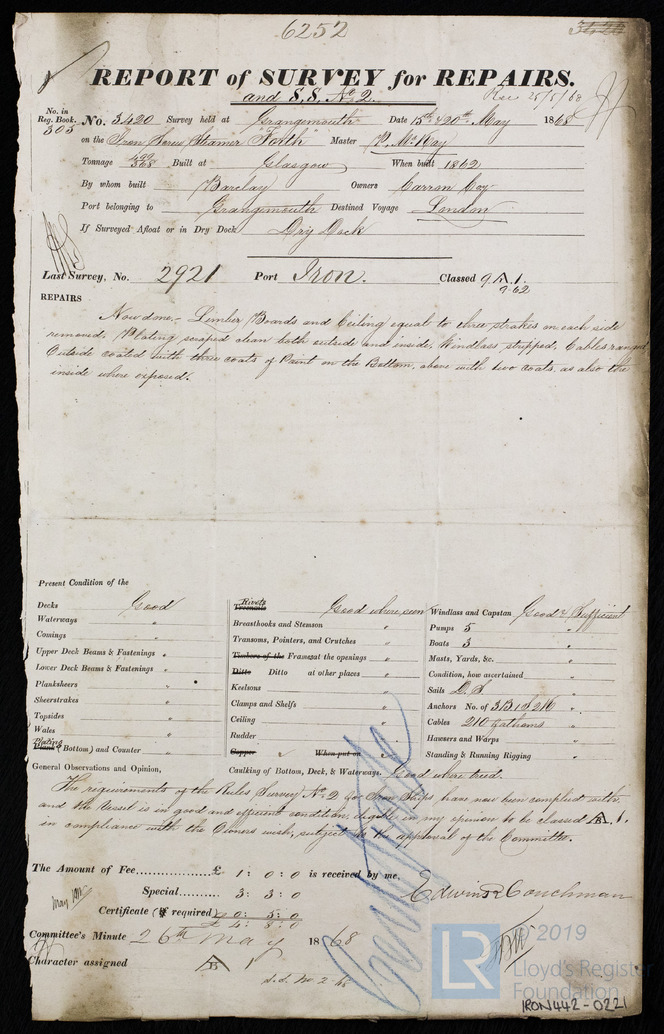 6252
3420
REPORT of SURVEY for REPAIRS.
and S.S. No 2.
Rec 25/5/68
No. in Reg. Book. 303
No. 3420 Survey held at Grangemouth Date 15th & 20th May 1868
on the Iron Screw Steamer "Forth" Master P. McKay
Tonnage 368 Built at Glasgow When built 1862
By whom built Barclay Owners Carron Coy
Port belonging to Grangemouth Destined Voyage London
If Surveyed Afloat or in Dry Dock Dry Dock
Last Survey, No. 2921 Port Iron. Classed 9 A 1.
9.62
REPAIRS
Now done,- Limber Boards and Ceiling equal to three strakes on each side
removed. Plating scraped clean both outside and inside, Windlass stripped, Cables ranged
Outside coated with three coats of Paint on the Bottom, above with two coats, as also the
inside where exposed.
Present Condition of the
Decks Good
Waterways "
Comings "
Upper Deck Beams & Fastenings "
Lower Deck Beams & Fastenings "
Planksheers "
Sheerstrakes "
Topsides "
Wales "
Plating (Bottom) and Counter "
Rivets
Treenails Good where seen
Breasthooks and Stemson "
Transoms, Pointers, and Crutches "
Timbers of the Frames at the openings "
Ditto Ditto at other places "
Keelsons "
Clamps and Shelfs "
Ceiling "
Rudder "
Copper " When put on "
Caulking of Bottom, Deck, & Waterways. Good where tried.
Windlass and Capstan Good & Sufficient
Pumps 5 "
Boats 3 "
Masts, Yards, &c. "
Condition, how ascertained "
Sails D. S "
Anchors No. of 3 B 1 S 2 K "
Cables 210 fathoms "
Hawsers and Warps "
Standing & Running Rigging "
General Observations and Opinion,
The requirements of the Rules Survey No. 2 for Iron Ships have now been complied with,
and the Vessel is in good and efficient condition, eligible in my opinion to be classed A. 1.
in compliance with the Owners wish, subject to the approval of the Committee.
The Amount of Fee............... £ 1: 0: 0 is received by me,
Special........... 3: 3: 0
Certificate (if required) 0: 5: 0
£ 4: 8: 0
Edwin R Couchman
Committee's Minute 26th May 1868
Character assigned A 1
© 2019
LR
Lloyd's Register
Foundation
IRON442-0221